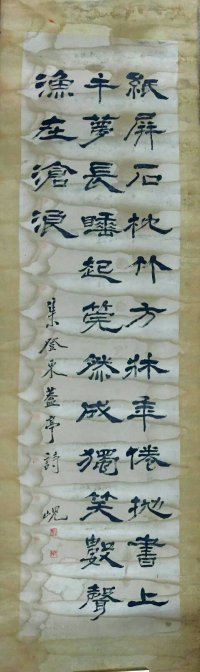 紙屏石枕竹方牀手倦抛書上
午夢長睡起筦然成獨笑數聲
漁在滄浪
集登東蓋亭詩 峴